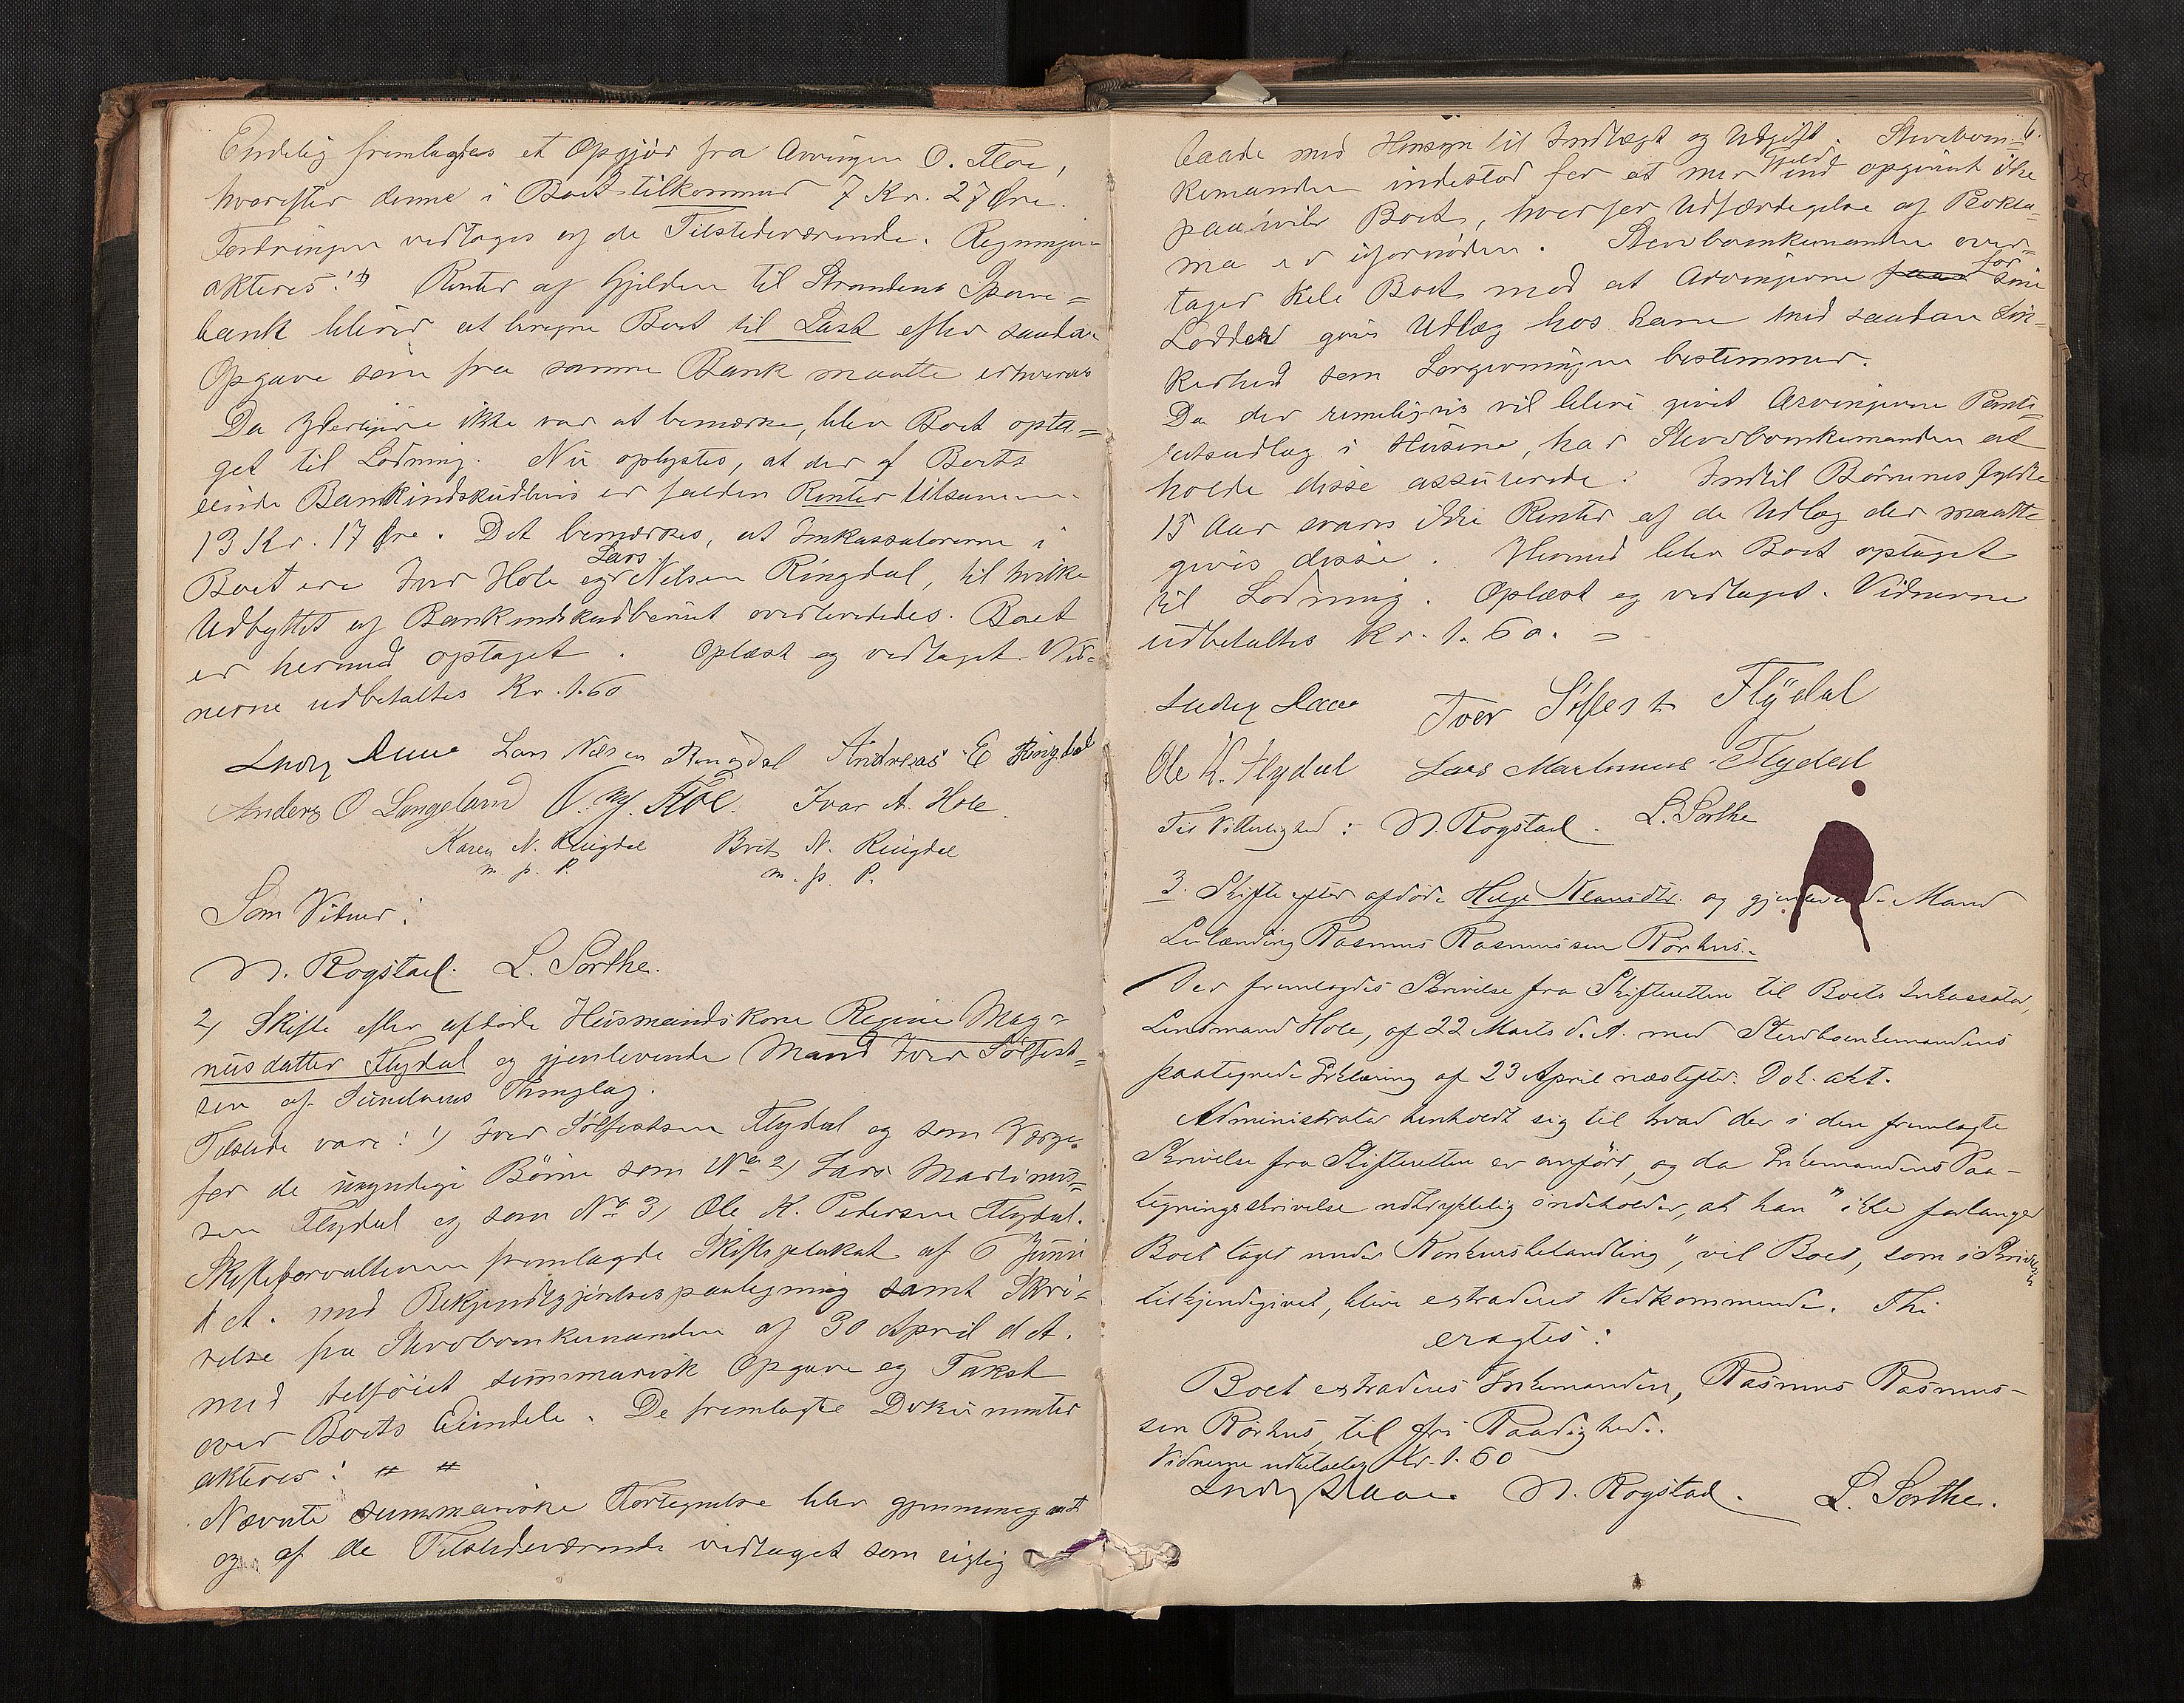 Endelig fremlagdes et Opgjør fra Arvingen O. Floe,
hvorefter denne i Boet tilkommer 7 Kr. 27 Øre.
Fordringen vedtoges af de Tilstedeværende. Regningen
akteres: Renter af Gjelden til Strandens Spare=
bank bliver at beregne Boet til Last efter saadan
Opgave som fra samme Bank maatte erhverves
Da Yderligere ikke var at bemærke, blev Boet opta=
get til Lodning. Nu oplystes, at der af Boets
eiende Bankindskudbevis er falden Renter tilsammen
13 Kr. 17 Øre. Det bemærkes, at Inkassatorerne i
Boet ere Iver Hole og Lars Nilsen Ringdal, til hvilke
Udbyttet af Bankindskudbeviset overleveredes. Boet
er hermed optaget. Oplæst og vedtaget. Vid=
nerne udbetaltes Kr. 1.60
Ludv Daae Lars Nilsen Ringdal Andreas E Ringdal
Anders O Langeland O. M. Floe. Ivar A. Hole.
Karen N. Ringdal Brit N. Ringdal
m. p. P. m. p. P.
Som Vitner:
N. Rogstad. L. Sorthe.
2) Skifte efter afdøde Huusmandskone Regine Mag=
nusdatter Flydal og gjenlevende Mand Iver Sølfest=
sen af Sundens Thinglag.
Tilstede vare: 1) Iver Sølfestsen Flydal og som Værge
for de umyndige Børn som No 2) Lars Martinus=
sen Flydal og som No 3) Ole K. Pedersen Flydal.
Skifteforvalteren fremlagde Skifteplakat af 6 Juni
d. A. med Bekjendtgjørelsespaategning samt Skri=
velse fra Stervboenkemanden af 30 April d. A.
med tilføiet summarisk Opgave og Takst
over Boets Eiendele. De fremlagte Dokumenter
akteres: # #
Nævnte summariske Fortegnelse blev gjennemgaaet
og af de Tilstedeværende vedtaget som rigtig
6.
baade med Hensyn til Indtægt og Udgift. Stervboen=
kemanden indestod for at mer Gjeld end opgivet ikke
paahviler Boet, hvorfor Udfærdigelse af Prokla=
ma er ufornøden. Stervboenkemanden over=
tager hele Boet mod at Arvingerne for sine
Lodder gives Udlæg hos ham med saadan Sik=
kerhed som Lovgivningen bestemmer.
Da der rimeligvis vil blive givet Arvingerne Pante=
retsudlæg i Husene, har Stervboenkemanden at
holde disse assurerede. Indtil Børnenes fyldte
15 Aar svares ikke Renter af de Udlæg der maatte
gives disse. Hermed blev Boet optaget
til Lodning. Oplæst og vedtaget. Vidnerne
udbetaltes Kr. 1.60. =
Ludv Daae Iver Sølfest Flÿdal
Ole K. Flydal Lars Martinus Flydal
Til Vitterlighed: N. Rogstad. L. Sorthe
3. Skifte efter afdøde Helje Klausdtr. og gjenlevende Mand
Leilænding Rasmus Rasmussen Rørhus.
Der fremlagdes Skrivelse fra Skifteretten til Boets Inkassator,
Lensmand Hole, af 22 Marts d. A. med Stervboenkemandens
paategnede Erklæring af 23 April næstefter. Dok. akt.
Administrator henholdt sig til hvad der i den fremlagte
Skrivelse fra Skifteretten er anført, og da Enkemandens Paa-
tegningsskrivelse udtrykkelig indeholder, at han "ikke forlanger
Boet taget under Konkursbehandling", vil Boet, som i Skrivelsen
tilkjendegivet, blive extraderet Vedkommende. Thi
eragtes:
Boet extraderes Enkemanden, Rasmus Rasmus-
sen Rørhus, til fri Raadighed.
Vidnerne udbetaltes Kr. 1.60
Ludv Daae. N. Rogstad. L. Sorthe.